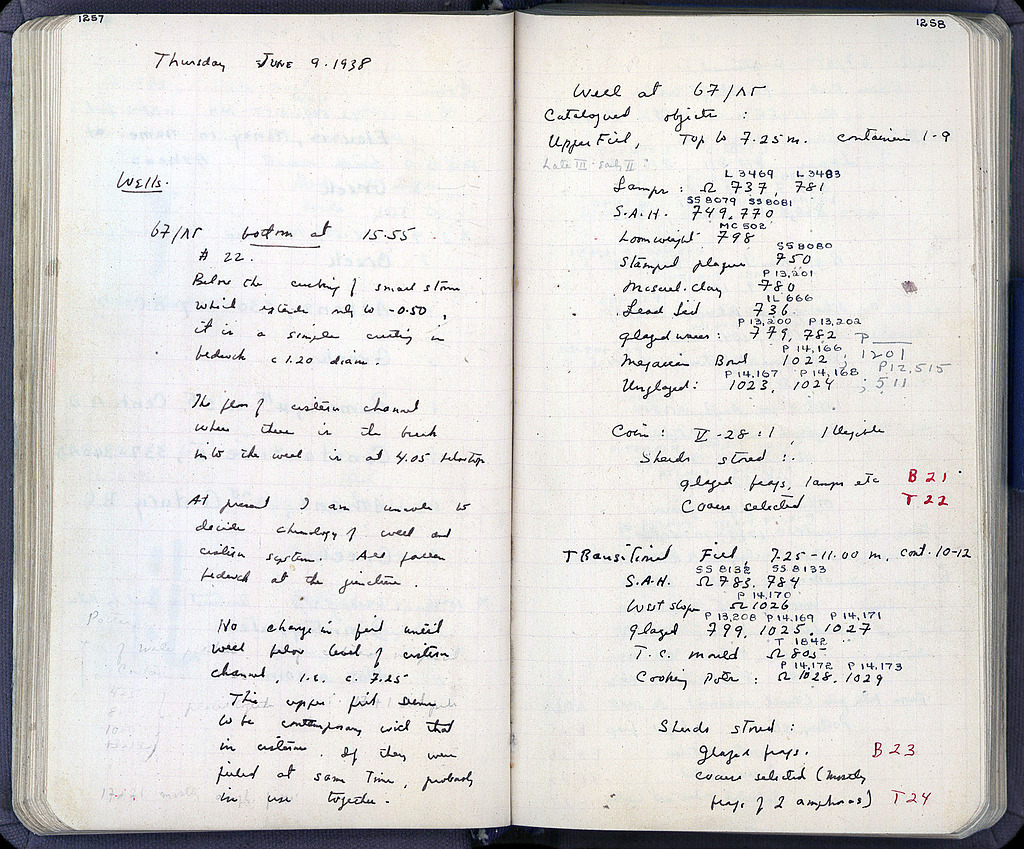 1257
Thursday JUNE 9. 1938
Wells.
67/ΛΓ bottom at 15.55
# 22.
Below the curbing of small stones
which extends only to -0.50,
it is a simple cutting in
bedrock c 1.20 diam.
The floor of cistern channel
where there is the break
into the well is at 4.05 below top
At present I am unable to
decide chronology of well and
cistern system. All fallen
bedrock at the juncture.
No change in fill until
well below level of cistern
channel, i.e. c. 7.25
This upper fill seems
to be contemporary with that
in cistern. If they were
filled at same time, probably
in use together.
1258
Well at 67/ΛΓ
Catalogued objects :
Upper Fill, Top to 7.25 m. containers 1-9
Late III - early II :
L 3469 L 3483
Lamps : Ω 737, 781
SS 8079 SS 8081
S.A.H. 749, 770
MC 502
Loomweight 798
SS 8080
Stamped plaque 750
P 13,201
Miscel. clay 780
IL 666
Lead lid 736
P 13,200 P 13,202
glazed wares: 779, 782 P
P 14,166
Megarian Bowl 1022 ; 1201
P 14,167 P 14,168 P 12,515
Unglazed : 1023, 1024 ; 511
Coin : V -28 : 1, Illegible
Sherds stored :
glazed frags, lamps etc B 21
Coarse selected T 22
Transitional Fill, 7.25-11.00 m, cont. 10-12
SS 8132 SS 8133
S.A.H. Ω 783, 784
P 14,170
West slope Ω 1026
P 13,208 P 14,169 P 14,171
glazed 799, 1025, 1027
T 1842
T.C. mould Ω 805
P 14,172 P 14,173
Cooking Pots : Ω 1028, 1029
Sherds stored :
Glazed frags. B 23
coarse selected (mostly
frags of 2 amphoras) T 24